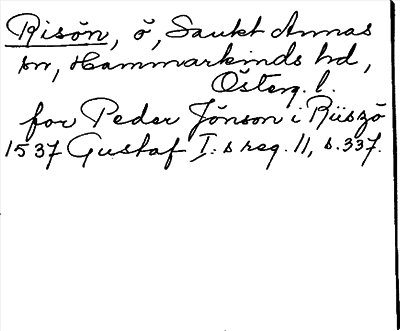 Risön, ö, Sankt Annas
sn, Hammarkinds hd,
Österg. l.
for Peder Jönson i Riiszö
1537 Gustaf I:s reg. 11, s. 337.